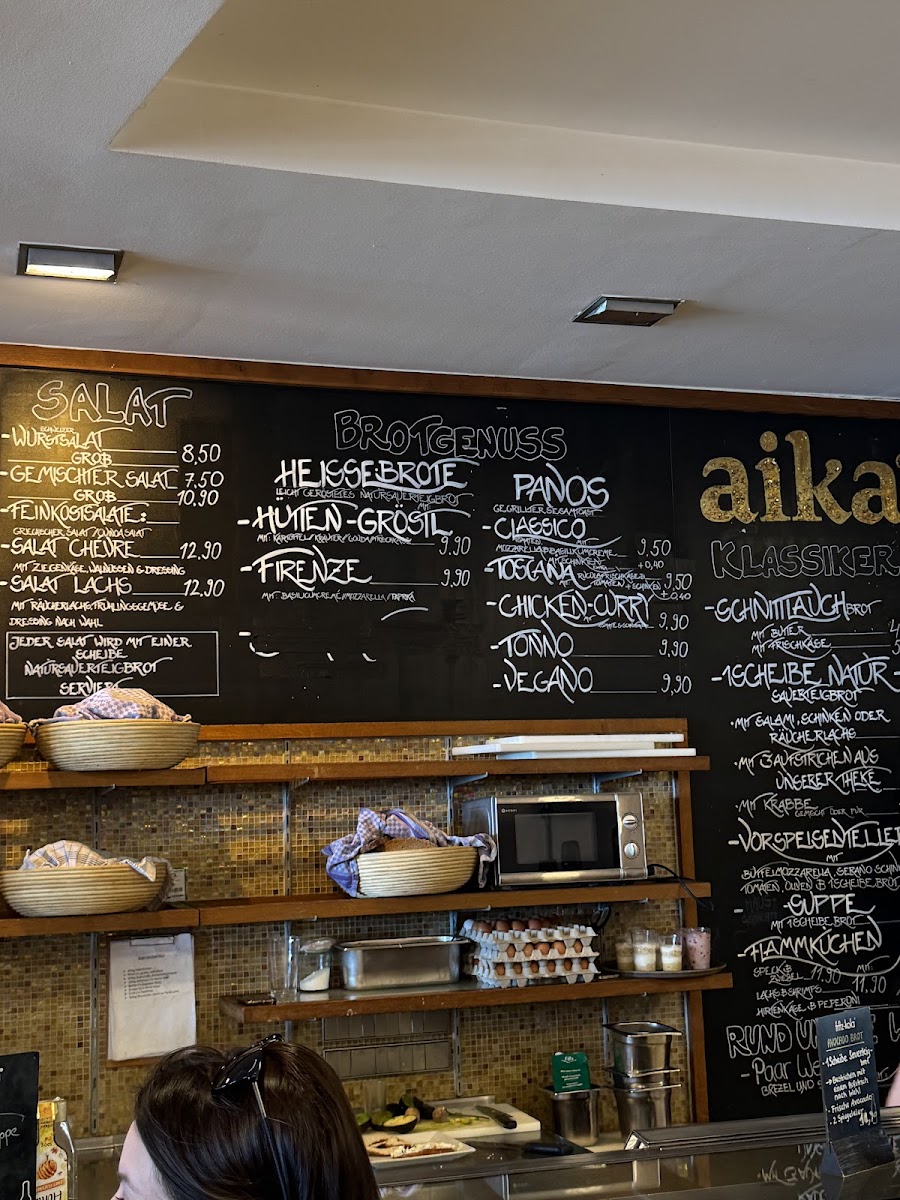 SALAT
SCHWEIZER
-WURSTSALAT
GROß 8,50
-GEMISCHTER SALAT 7,50
GROß 10,90
-FEINKOSTSALATE:
GRIECHISCHER SALAT / QUINOASALAT
-SALAT CHÈVRE 12,90
MIT ZIEGENKÄSE, WALNÜSSEN & DRESSING
-SALAT LACHS 12,90
MIT RÄUCHERLACHS, FRÜHLINGSGEMÜSE &
DRESSING NACH WAHL
JEDER SALAT WIRD MIT EINER
SCHEIBE
NATURSAUERTEIGBROT
SERVIERT
BROTGENUSS
HEISSE BROTE
LEICHT GERÖSTETES NATURSAUERTEIGBROT
MIT
-HÜTTEN-GRÖSTL 9,90
MIT: KARTOFFEL/ KRÄUTER/ GOUDA/FRISCHKÄSE
-FIRENZE 9,90
MIT: BASILIKUMCREME/MOZZARELLA/PAPRIKA
PANOS
GEGRILLTER SESAMTOAST
-CLASSICO 9,50
TOMATEN MIT
MOZZARELLA & BASILIKUMCREME
MIT SCHINKEN +0,40
-TOSCANA RUCOLAFRISCHKÄSE 9,50
TOMATEN + SCHINKEN +0,40
-CHICKEN-CURRY 9,90
-TONNO 9,90
-VEGANO 9,90
aika
KLASSIKER
-SCHNITTLAUCHBROT
MIT BUTTER
MIT FRISCHKÄSE
-1 SCHEIBE NATUR-
SAUERTEIGBROT
•MIT SALAMI, SCHINKEN ODER
RÄUCHERLACHS
•MIT 3 AUFSTRICHEN AUS
UNSERER THEKE
•MIT KRABBE
GEMISCHT ODER PUR
-VORSPEISENTELLER
MIT
BÜFFELMOZZARELLA, SERANO SCHINKEN
TOMATEN, OLIVEN & 1 SCHEIBE BROT
-SUPPE
MIT 1 SCHEIBE BROT
-FLAMMKUCHEN
SPECK &
ZWIEBEL 11,90 MIT: 11,90
LACHS & SHRIMPS
HIRTENKÄSE & PEPERONI
RUND UM
-Paar We
BREZEL UND S
AVOCADO BROT
•1 Scheibe Sauerteig-
brot
•Frische Avocado
•2 Spiegeleier